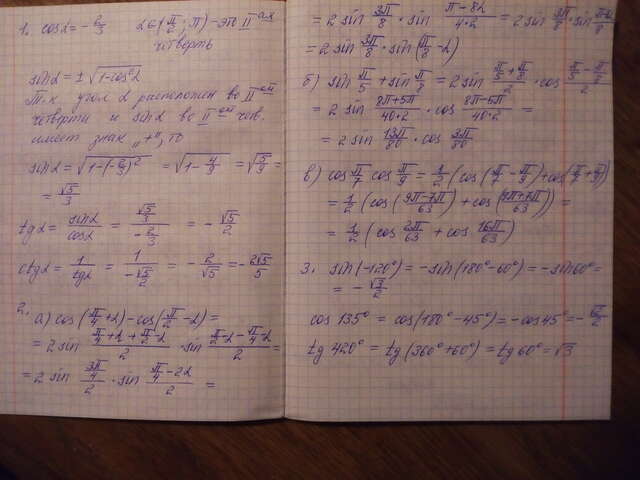 1. cosα = -2/3    α ∈ (π/2; π) - это II ая
четверть
sinα = ±√(1-cos²α)
Т.к. угол α расположен во II ой
четверти и sinα во II ой чет.
имеет знак „+”, то
sinα = √(1-(-2/3)²) = √(1-4/9) = √(5/9) =
= √5/3
tgα = sinα/cosα = (√5/3)/(-2/3) = -√5/2
ctgα = 1/tgα = 1/(-√5/2) = -2/√5 = -2√5/5
2.
а) cos(π/4+α)-cos(π/2-α) =
= 2 sin (π/4+α+π/2-α)/2 · sin (π/2-α-π/4-α)/2 =
= 2 sin (3π/4)/2 · sin (π/4-2α)/2 =
= 2 sin 3π/8 · sin (π-8α)/(4·2) = 2 sin 3π/8 · sin (π-8α)/8
= 2 sin 3π/8 · sin(π/8-α)
б) sin π/5 + sin π/8 = 2 sin (π/5+π/8)/2 · cos (π/5-π/8)/2 =
= 2 sin (8π+5π)/(40·2) · cos (8π-5π)/(40·2) =
= 2 sin 13π/80 · cos 3π/80
в) cos π/7 cos π/9 = 1/2 (cos(π/7-π/9)+cos(π/7+π/9))
= 1/2 (cos(9π-7π)/63) + cos(9π+7π)/63)) =
= 1/2 (cos 2π/63 + cos 16π/63)
3. sin(-120°) = -sin(180°-60°) = -sin60° =
= -√3/2
cos 135° = cos(180°-45°) = -cos45° = -√2/2
tg 420° = tg(360°+60°) = tg 60° = √3